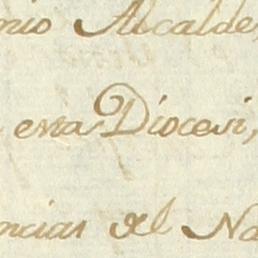 nio Alcalde,
esta Diocesi,
ncias del Na